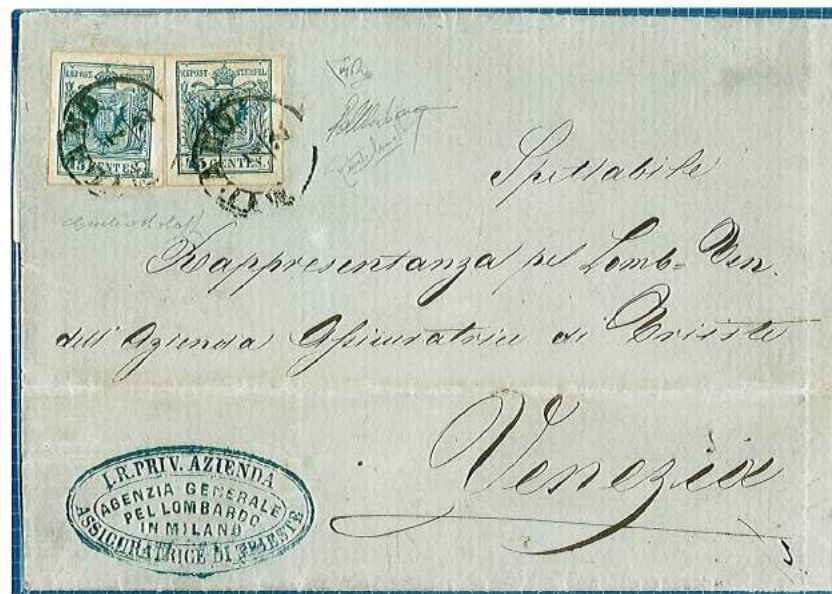 KKPOST-STEMPEL KKPOST-STEMPEL
45 CENTES. 45 CENTES.
MILANO MILANO
Spettabile
Rappresentanza pel Lomb=Ven.
dell'Azienda Assicuratrice di Trieste
Venezia
I.R. PRIV. AZIENDA
AGENZIA GENERALE
PEL LOMBARDO
IN MILANO
ASSICURATRICE DI TRIESTE